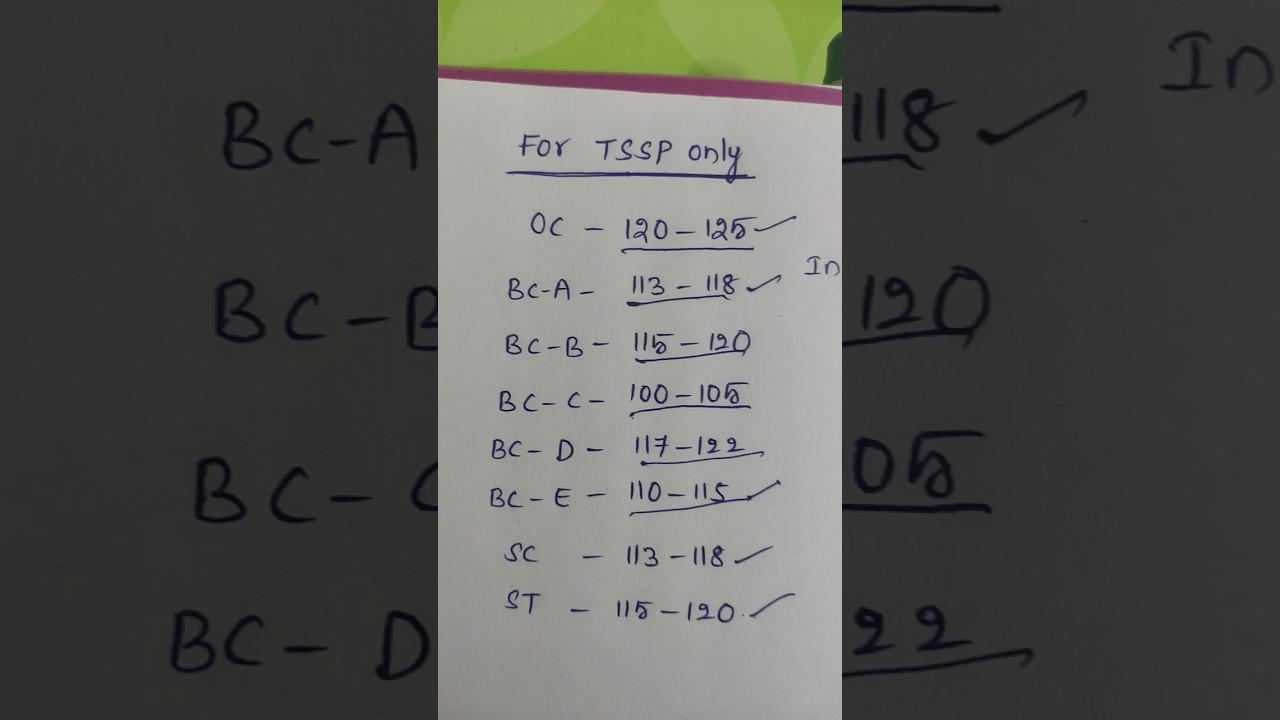 For TSSP only
OC - 120-125 ✓
In
BC-A - 113 - 118 ✓
BC-B - 115-120
BC-C- 100-105
BC-D - 117-122
BC-E - 110-115 ✓
SC - 113-118 ✓
ST - 115-120. ✓